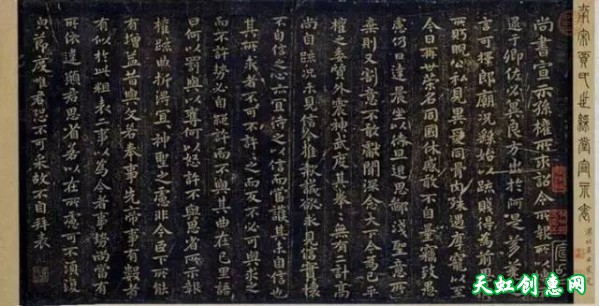 尚書宣示孫權所求詔令所報所以
逮于卿佐必冀良方出於阿是芻蕘
言可擇郎廟況繇始以疏賤得為前
所盱睨公私見異愛同骨肉殊遇厚寵以至
今日再世榮名同國休慼敢不自量竊致愚
慮仍日達晨坐以待旦退思鄙淺聖意所
棄則又割意不敢獻聞深念天下今為已平
權之委質外震神武度其拳拳無有二計高
尚自疏況未見信今推款誠欲求見信實懷
不自信之心亦宜待之以信而當護其未自信也
其所求者不可不許許之而反不必可與求之
而不許勢必自絕許而不與其曲在己里語
曰何以罰與以奪何以怒許不與思省所示報
權疏曲折得宜神聖之慮非今臣下所能
有增益昔與文若奉事先帝事有數者
有似於此粗表二事以為今者事勢尚當有
所依違願君思省若以在所慮可不須復
皃節度唯君恐不可采故不自拜表
天虹创意网